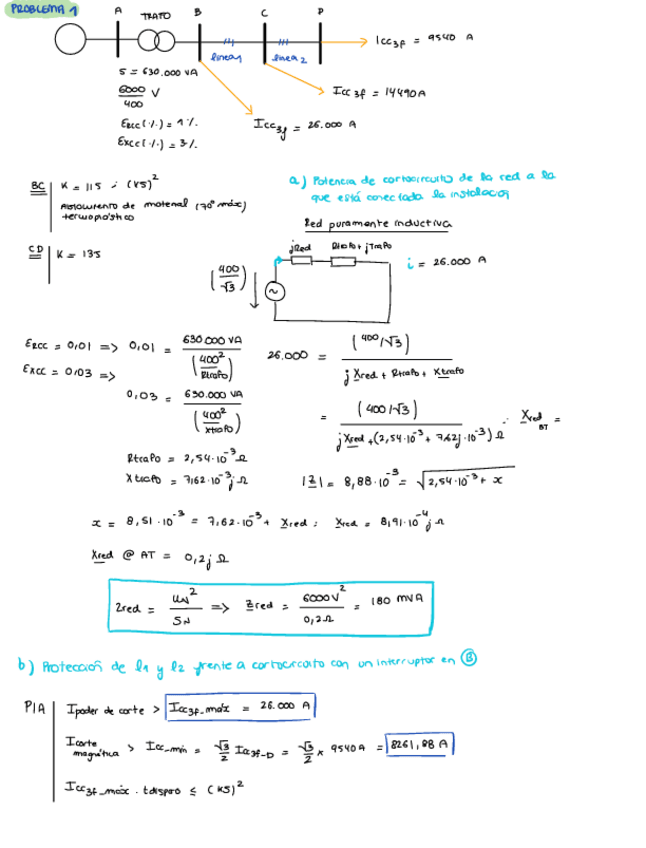 PROBLEMA 1
A TRAFO B C D
línea 1 línea 2
Icc3f = 9540 A
S = 630.000 VA
6000/400 V
Icc3f = 14490 A
Ercc(%) = 1%
Excc(%) = 3%
Icc3f = 26.000 A
BC | K = 115 ; (KS)²
Aislamiento de material (70° máx)
termoplástico
CD | K = 135
a) Potencia de cortocircuito de la red a la
que está conectada la instalación
Red puramente inductiva
jXred Rtrafo + jTrafo
i = 26.000 A
(400/√3)
Ercc = 0,01 => 0,01 = 630.000 VA / (400²/Rtrafo)
Excc = 0,03 =>
0,03 = 630.000 VA / (400²/Xtrafo)
Rtrafo = 2,54·10⁻³ Ω
Xtrafo = 7,62·10⁻³j Ω
26.000 = (400/√3) / (jXred + Rtrafo + Xtrafo)
= (400/√3) / (jXred + (2,54·10⁻³ + 7,62j·10⁻³) Ω) ∴ Xred BT =
|Z| = 8,88·10⁻³ = √(2,54·10⁻³ + x)
x = 8,51·10⁻³ = 7,62·10⁻³ + Xred ; Xred = 8,91·10⁻⁴j Ω
Xred @ AT = 0,2j Ω
Zred = UN²/SN => Zred = 6000V²/0,2Ω = 180 MVA
b) Protección de l1 y l2 frente a cortocircuito con un interruptor en B
PIA | Ipoder de corte > Icc3f_máx = 26.000 A
Icorte magnética > Icc_mín = √3/2 Icc3f_D = √3/2 × 9540A = 8261,88 A
Icc3f_máx · tdisparo ≤ (KS)²